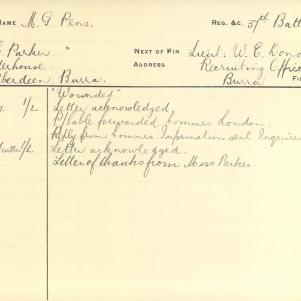 NAME M. G. Pens. REG. &C. 37th Batt
Parker " NEXT OF KIN Lieut. W. E.
ADDRESS Recruiting Office
Aberdeen, Burra. Burra
"Wounded"
1/2 Letter acknowledged.
forwarded Commrs London.
Reply from Commrs Information sent
1/2 Letter acknowledged.
Letter of thanks from Miss Parker.